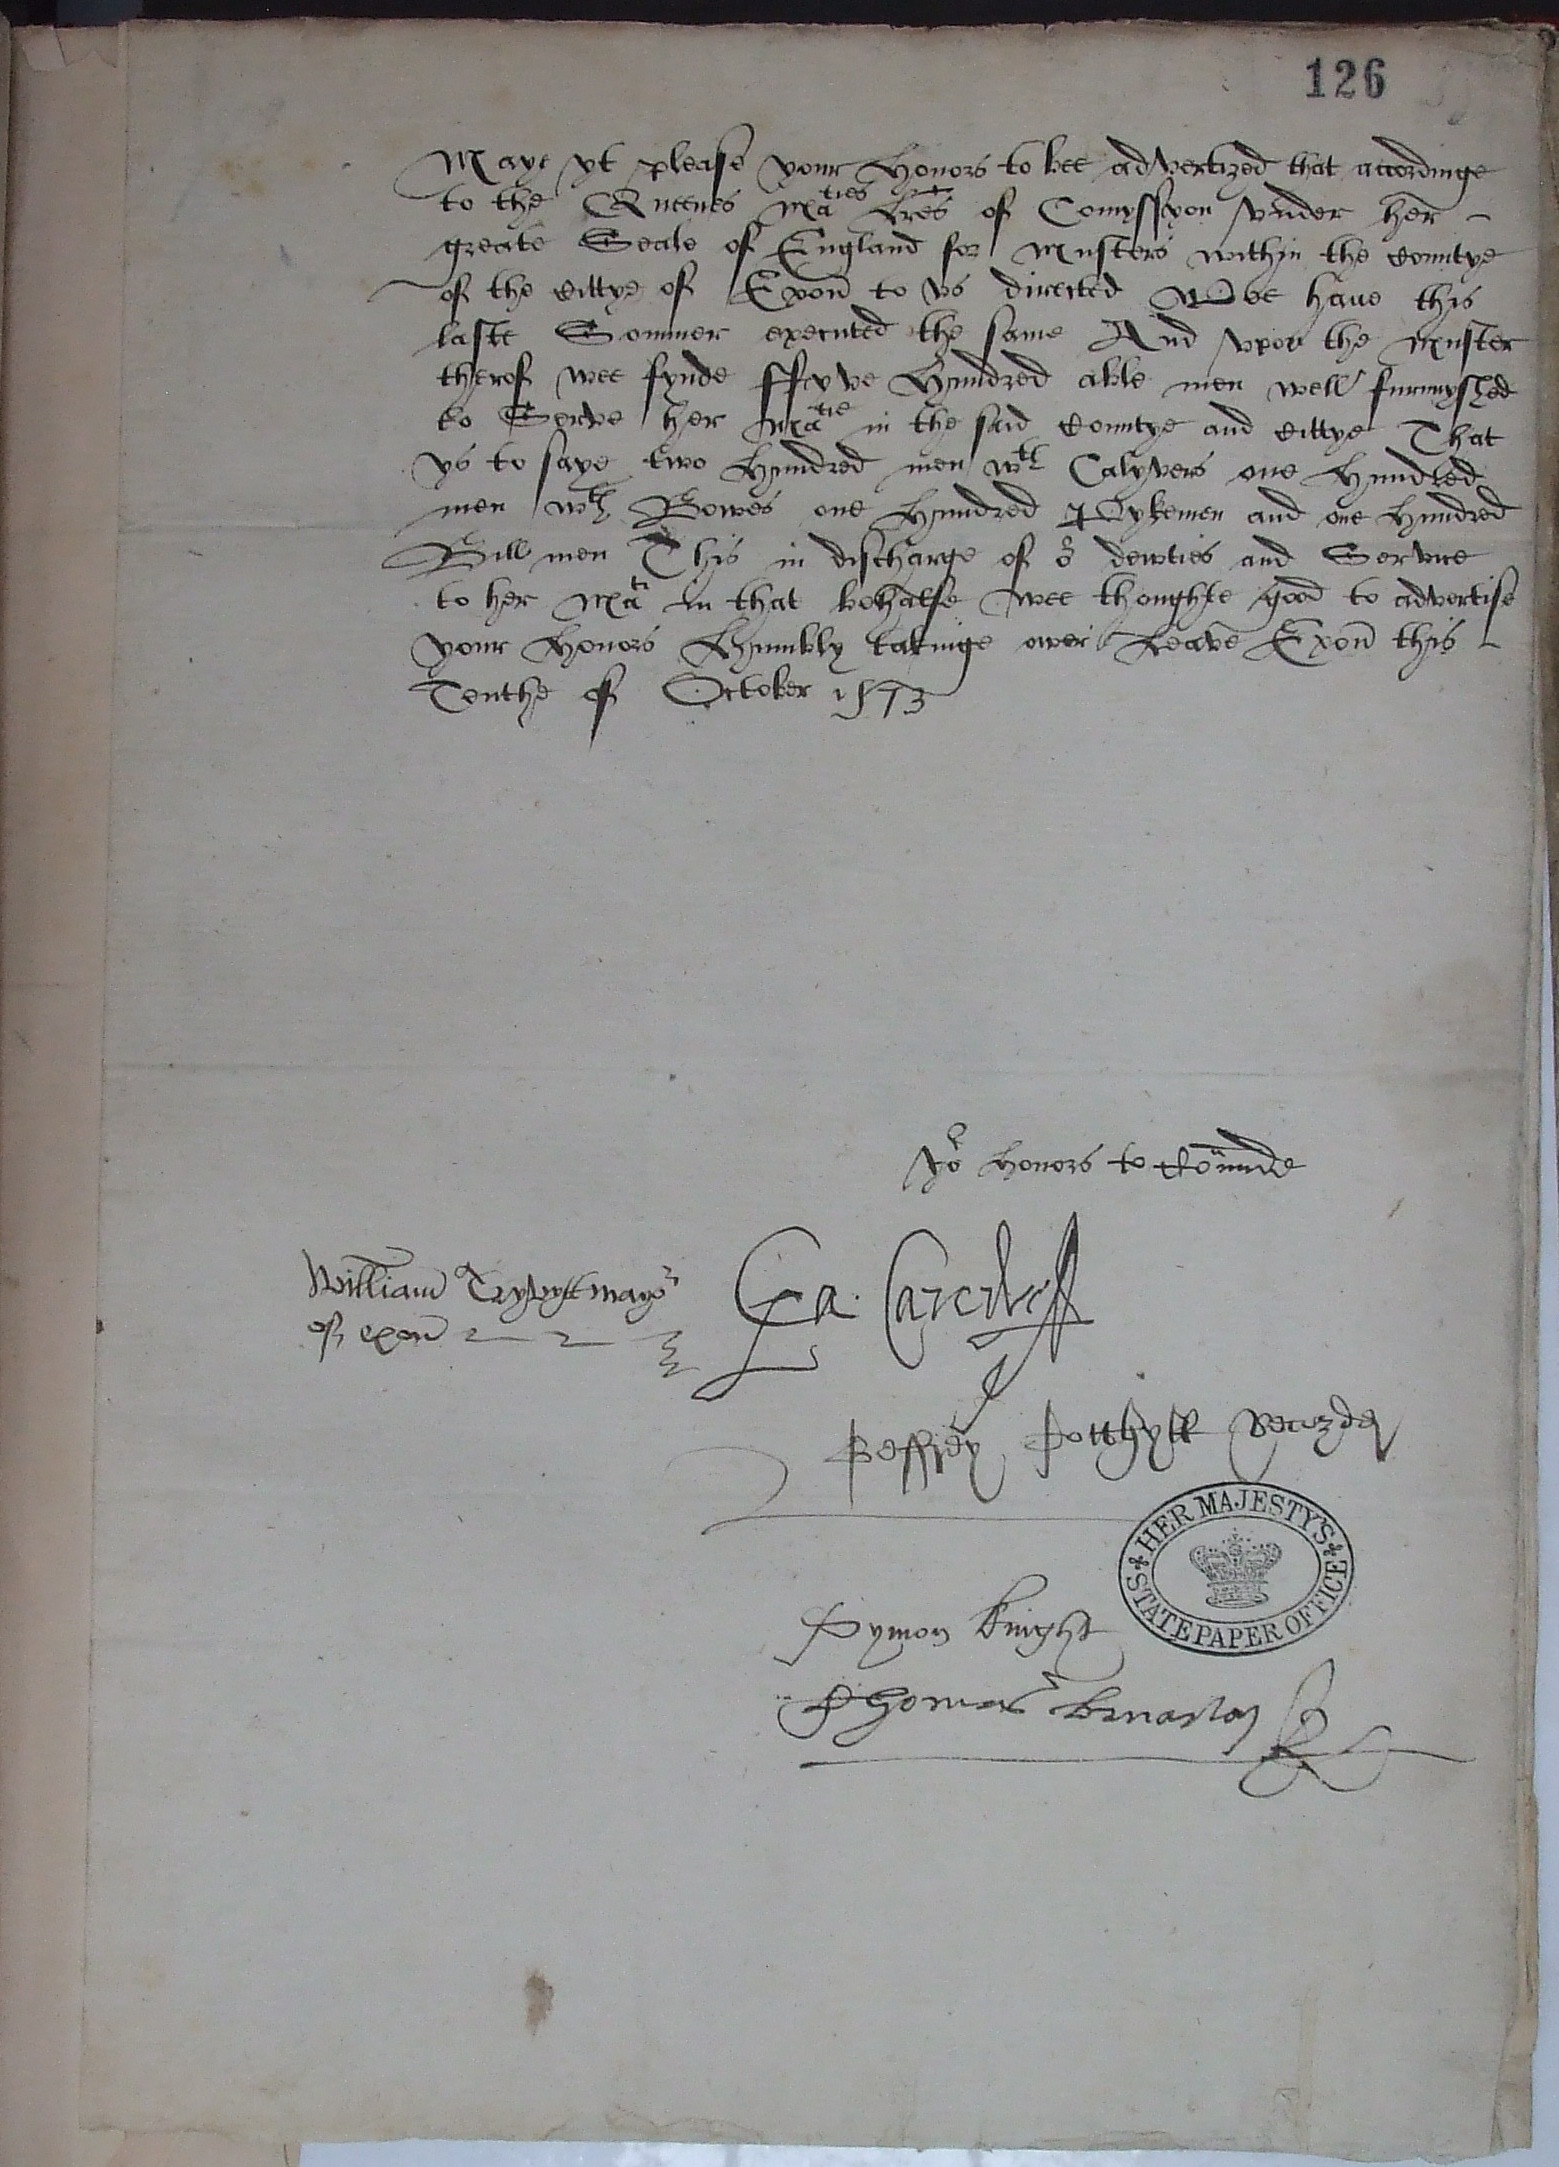 126
Maye yt please your Honors to bee advertized that accordinge
to the Queenes Ma^ties lr̃es of Comyssyon vnder her
greate Seale of England for Musters within the Countye
of the Cittye of Exoñ to vs directed Wee haue this
laste Sommer executed the same And vpon the Muster
therof wee fynde ffyve Hundred able men well furnnyshed
to Serve her Ma^tie in the said Countye and Cittye That
ys to saye two Hundred men w^th Calyvers one Hundred
men w^th Bowes one Hundred Pykemen and one Hundred
Bill men This in discharge of o^r dewties and Service
to her Ma^ti in that behalfe wee thoughte good to advertise
your Honors Humbly takinge ower Leave Exoñ this
Tenthe of October 1573
Yo^r Honors to Com̃nde
William Tryvytt mayo^r
of exoñ
Ga. Carewe
Geffrey Tothyll Recorder
Symon Knight
Thomas
HER MAJESTY'S
STATE PAPER OFFICE